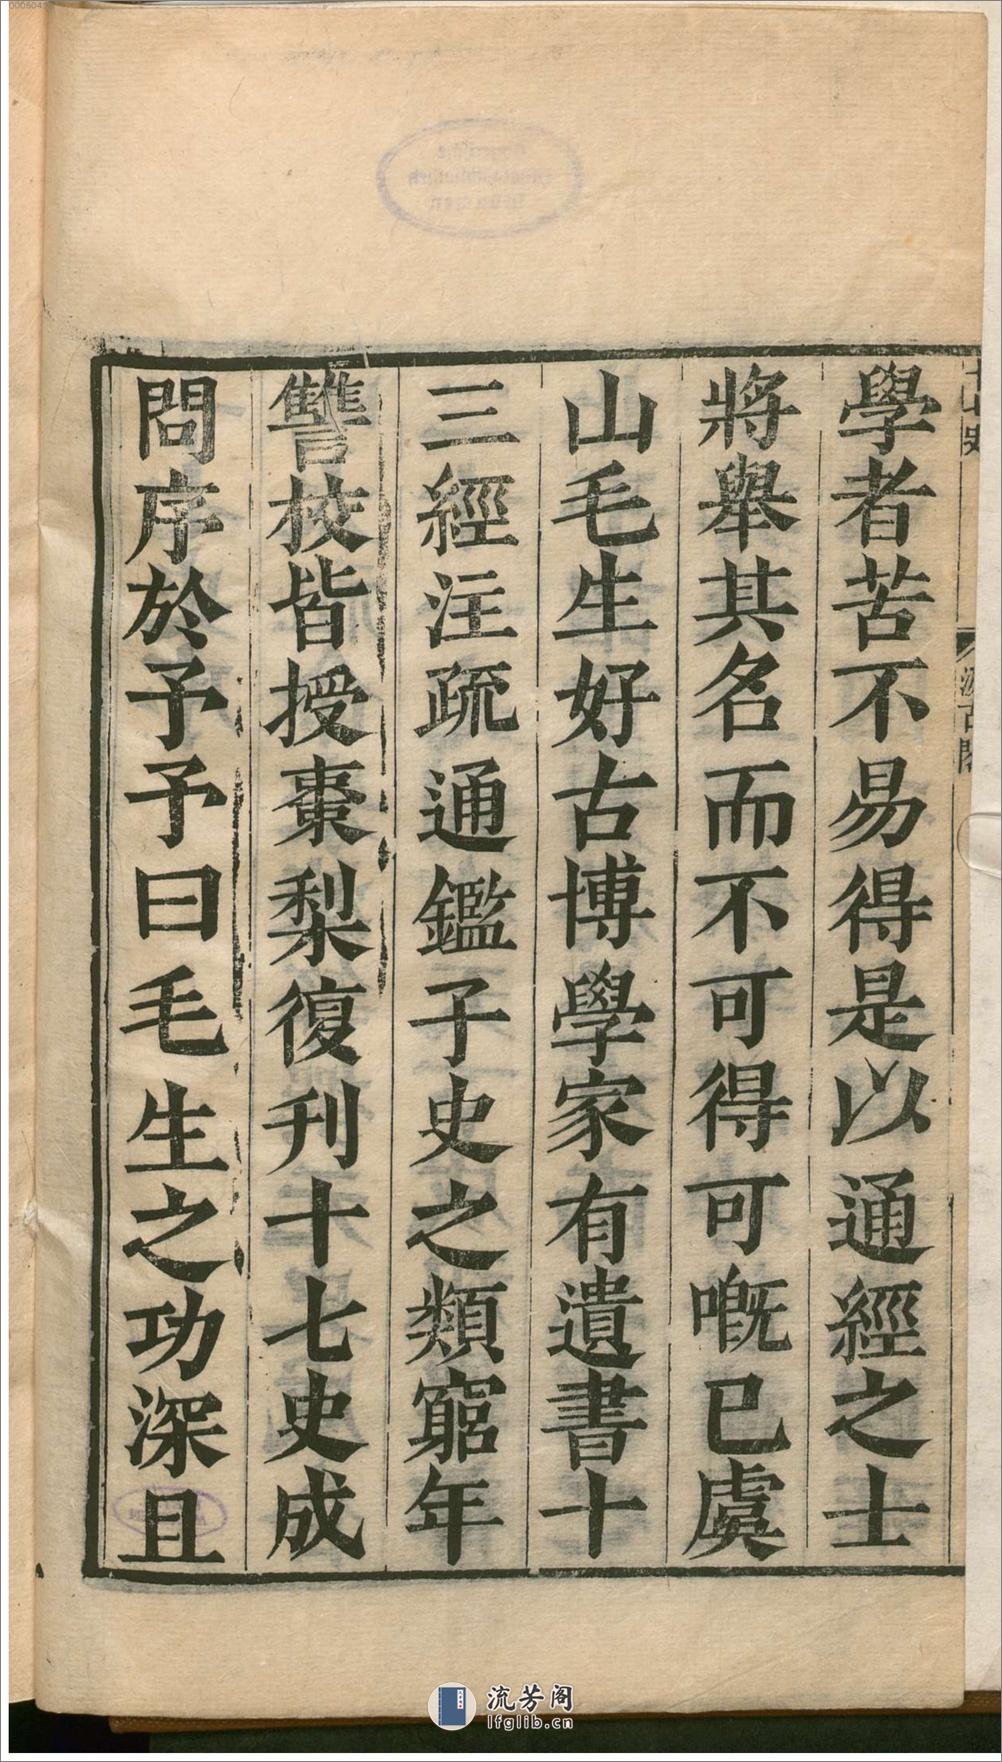 學者苦不易得是以通經之士
將舉其名而不可得可嘅已虞
山毛生好古博學家有遺書十
三經注疏通鑑子史之類窮年
讐校皆授棗梨復刊十七史成
問序於予予曰毛生之功深且
流芳阁
lfglib.cn